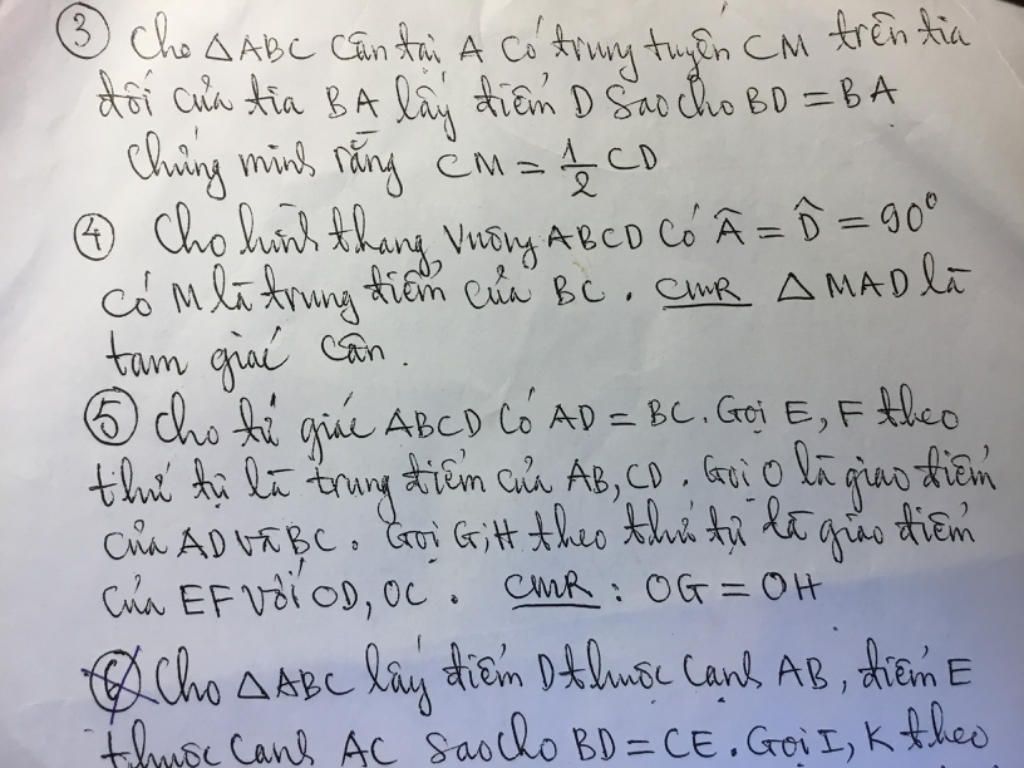 ③ Cho △ABC cân tại A có trung tuyến CM trên tia
đối của tia BA lấy điểm D sao cho BD = BA
Chứng minh rằng CM = 1/2 CD
④ Cho hình thang vuông ABCD có Â = D̂ = 90°
có M là trung điểm của BC. CMR △ MAD là
tam giác cân.
⑤ Cho tứ giác ABCD có AD = BC. Gọi E, F theo
thứ tự là trung điểm của AB, CD. Gọi O là giao điểm
của AD và BC. Gọi G, H theo thứ tự là giao điểm
của EF với OD, OC. CMR : OG = OH
⑥ Cho △ABC lấy điểm D thuộc cạnh AB, điểm E
thuộc cạnh AC sao cho BD = CE. Gọi I, K theo